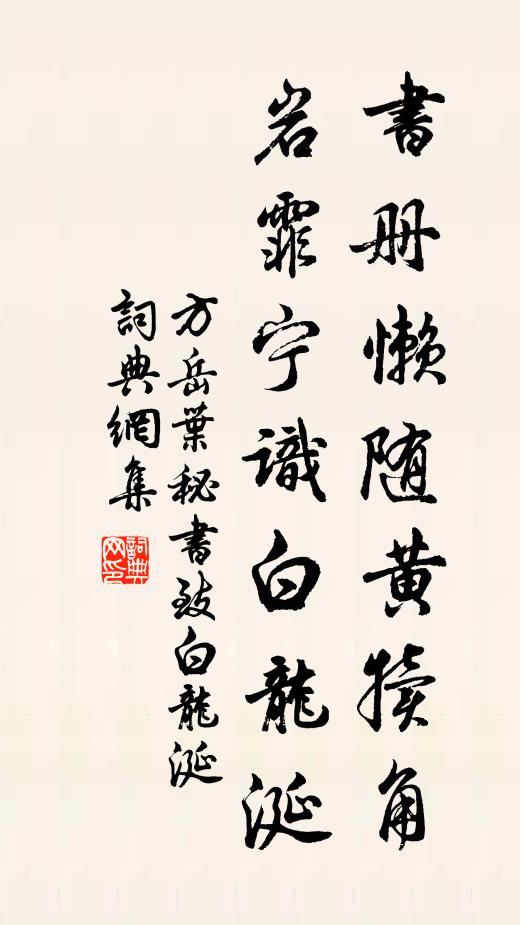 書册懒随黄犢角
岩霏宁識白龍涎
方岳葉秘書致白龍涎
詞典網集
詞典网印